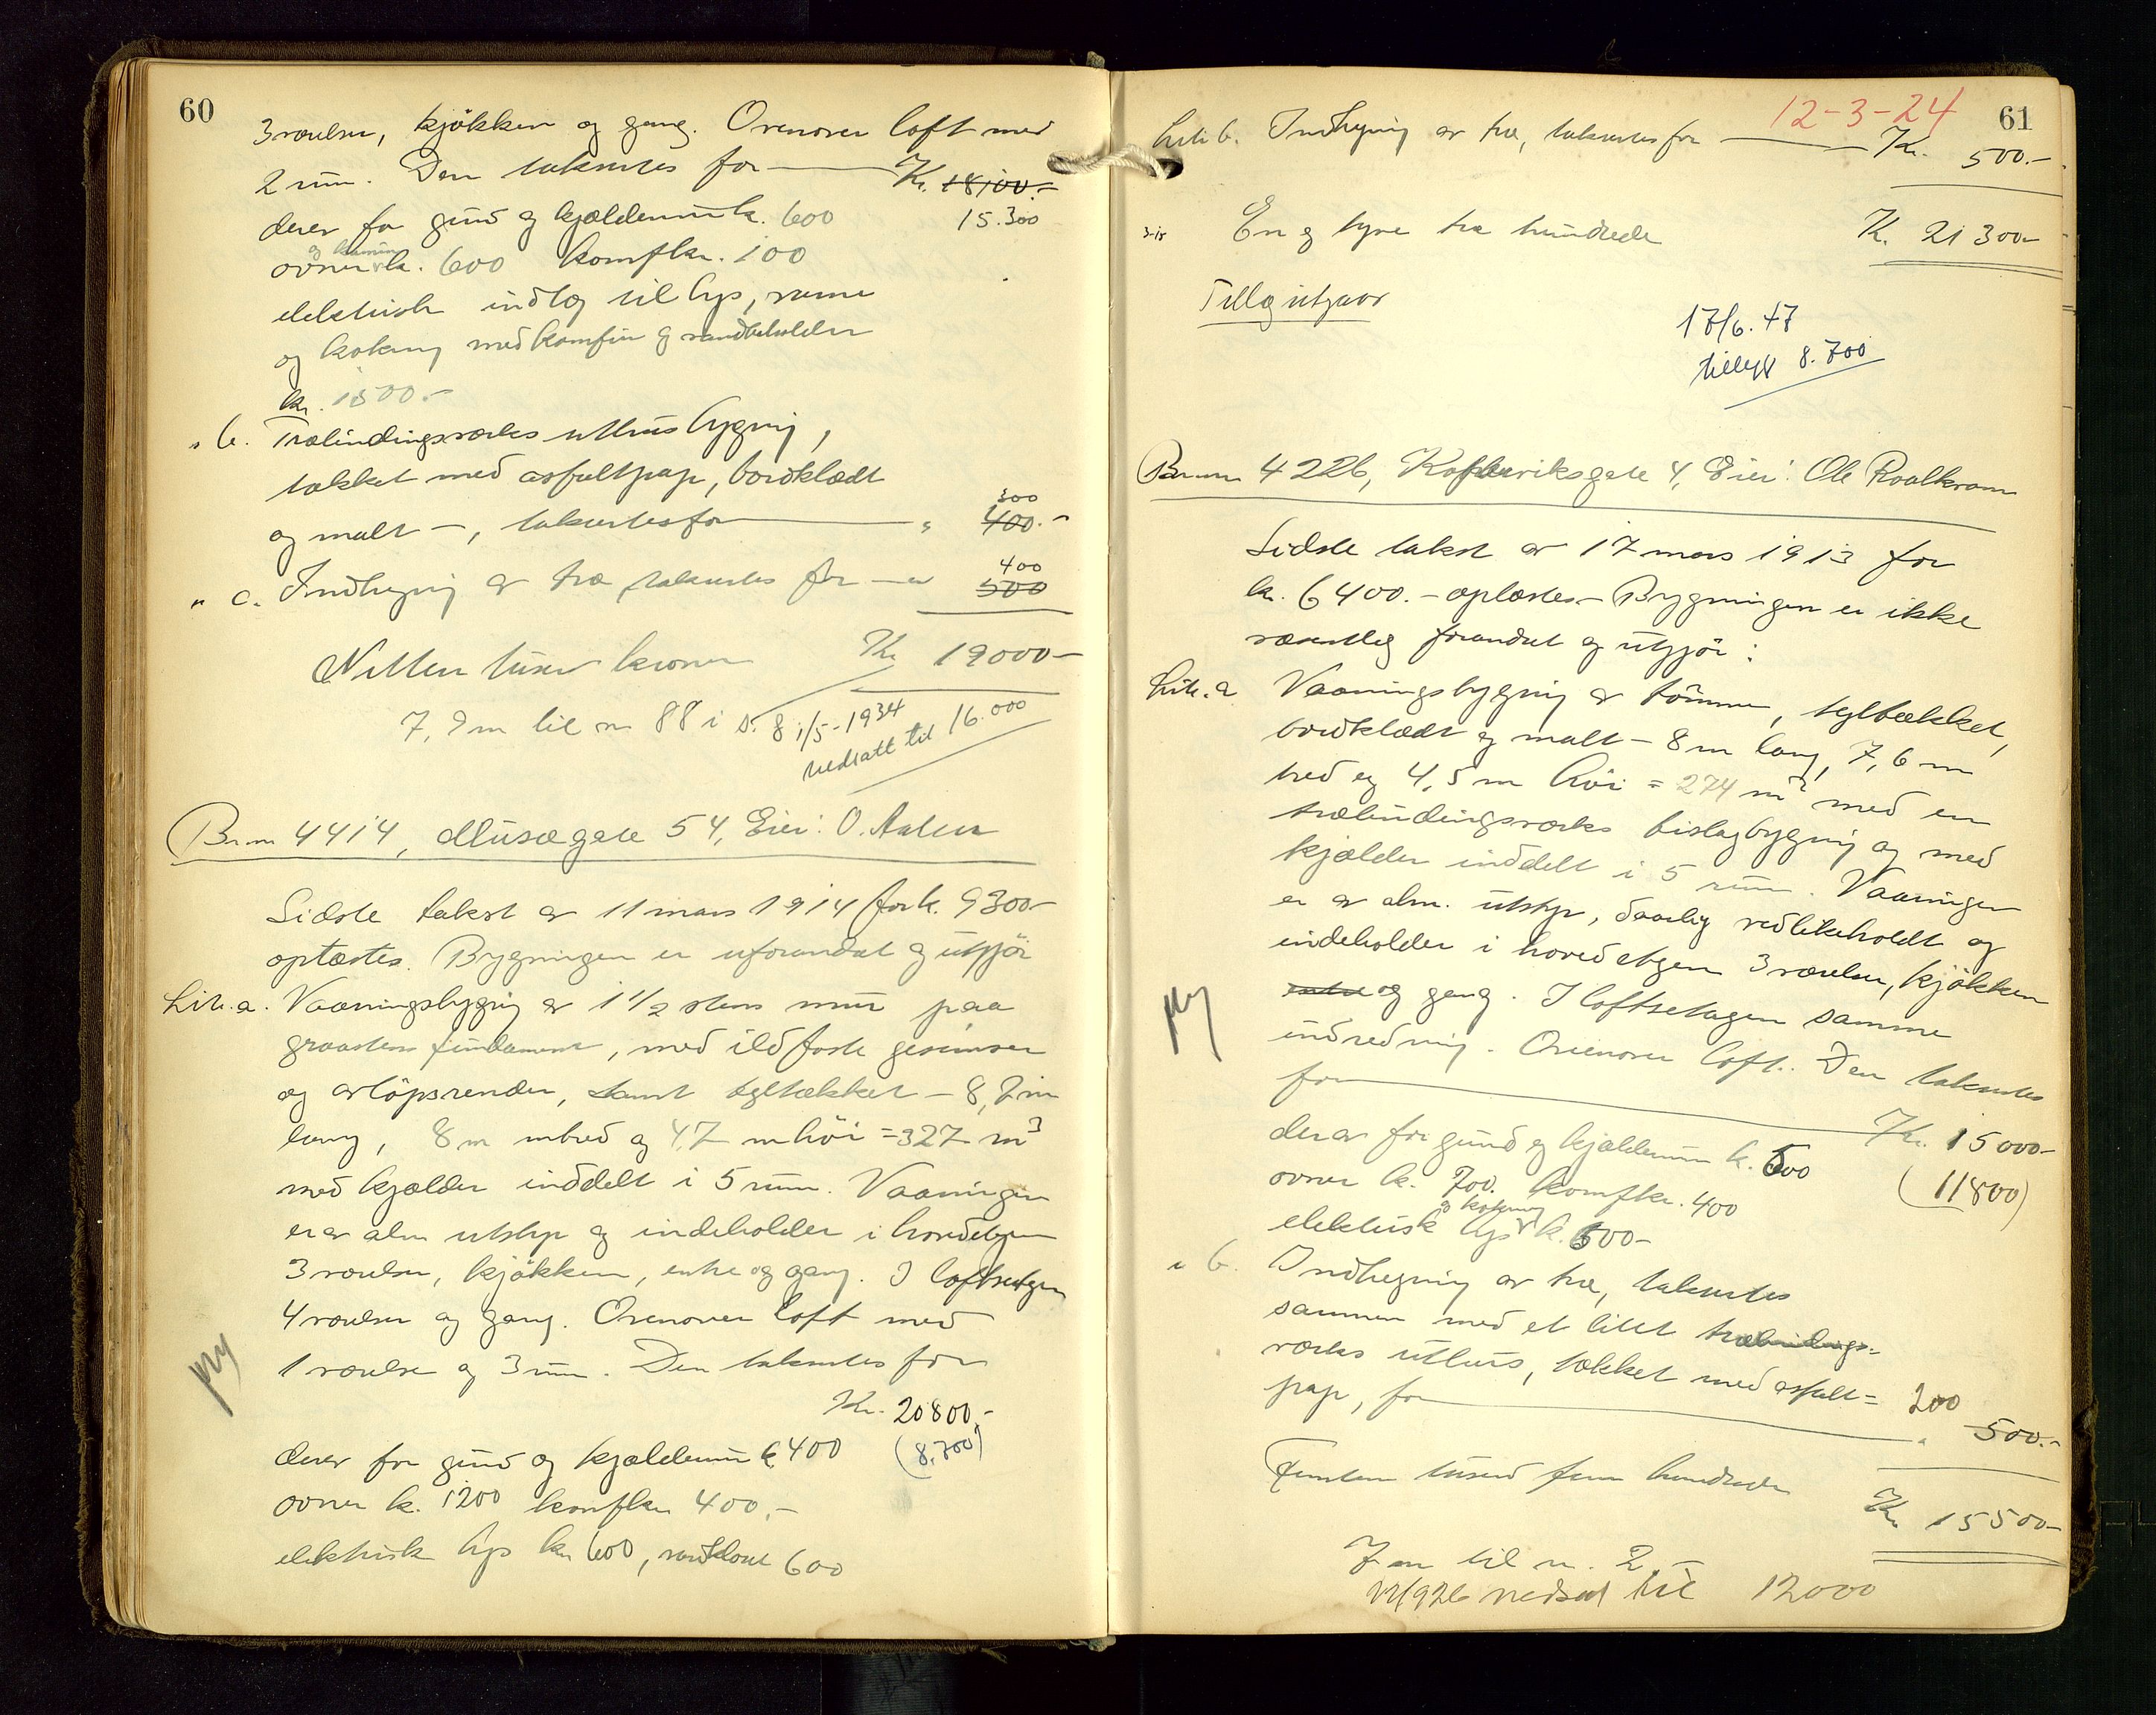 60
3 værelser, kjøkken og gang. Ovenover loft med
2 rum. Den takseres for Kr. 18100.-
derav for grund og kjælderrum k. 600 15.300
ovner og kamin k. 600 komf kr. 100
elektrisk indlæg til lys, varme
og kokning med komfur og vandbeholder
kr. 1500.-
" b. Træbindingsverks uthusbygning,
tækket med asfaltpap, bordklædt
300
og malt -, takseres for " 400.-
400
" c. Indhegning av træ takseres for " 500
Nitten tusen kroner Kr 19000-
7,9 m til nr 88 i S. 8 1/5-1934
nedsatt til 16.000
Br.nr 4414, Musægate 54, Eier: O. Aalen
Sidste takst av 11 mars 1914 for k. 9300-
oplæstes. Bygningen er uforandret og utgjør
Lit. a. Vaaningsbygning av 1 1/2 stens mur paa
graastens fundament, med ildfaste gesimser
og avløpsrender, samt tegltækket - 8,7 m
lang, 8 m bred og 4,7 m høi = 327 m3
med kjælder inddelt i 5 rum. Vaaningen
er av alm utstyr og indeholder i hovedetagen
3 værelser, kjøkken, entre og gang. I loftsetagen
4 værelser og gang. Ovenover loft med
1 værelse og 3 rum. Den takseres for
Kr. 20800.-
derav for grund og kjælderrum k 400 (8.700)
ovner k. 1200 komf kr 400.-
elektrisk lys kr 600, vandkloset 600
12-3-24
61
Litr b. Indhegning av træ, takseres for Kr. 500.-
En og tyve tre hundrede K. 21 300-
Tillæg utgaar
17/6. 47
tillegg 8.700
Br.nr 4226, Kopperviksgate 4, Eier: Ole Roalkvam
Sidste takst av 17 mars 1913 for
kr. 6400.- oplæstes - Bygningen er ikke
væsentlig forandret og utgjør:
Lit. a Vaaningsbygning av tømmer, tegltækket,
bordklædt og malt - 8 m lang, 7,6 m
bred og 4,5 m høi = 274 m3 med en
træbindingsverks bislagbygning og med
kjælder inddelt i 5 rum. Vaaningen
er av alm. utstyr, daarlig vedlikeholdt og
indeholder i hovedetagen 3 værelser, kjøkken
entre og gang. I loftsetagen samme
indredning. Ovenover loft. Den takseres
for Kr. 15000-
derav for grund og kjælderrum k. 600 (11800)
ovner k. 700. komf kr. 400
elektrisk lys og kokning k. 600-
" b. Indhegning av træ, takseres
sammen med et litet træbindings-
verks uthus, tækket med asfalt= 200
pap, for " 500.-
Femten tusend fem hundrede
Kr 15500-
7 m til nr. 2
1926 nedsat til 12000